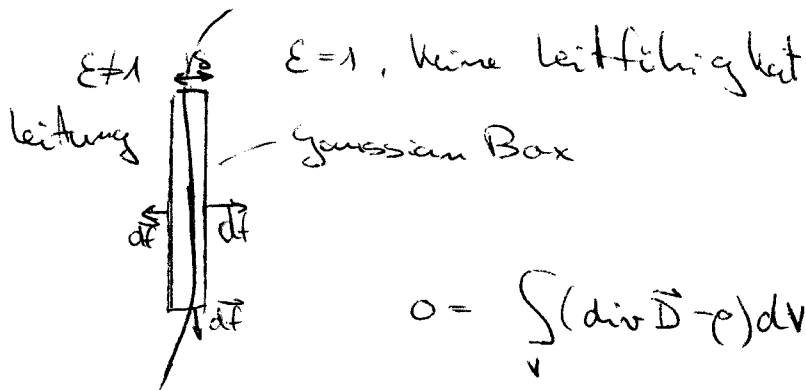 δ
ε≠1 ε=1, keine Leitfähigkeit
Leitung
Gaussian Box
d⃗f d⃗f
d⃗f
0 = ∫_V (div D⃗ - ρ) dV